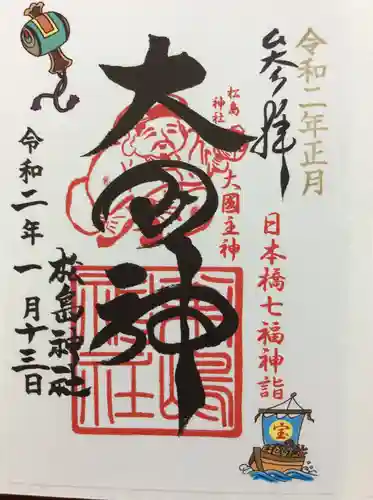 令和二年正月
参拝
日本橋七福神詣
宝
松島
神社
大國主神
大国神
松島神社
令和二年一月十三日